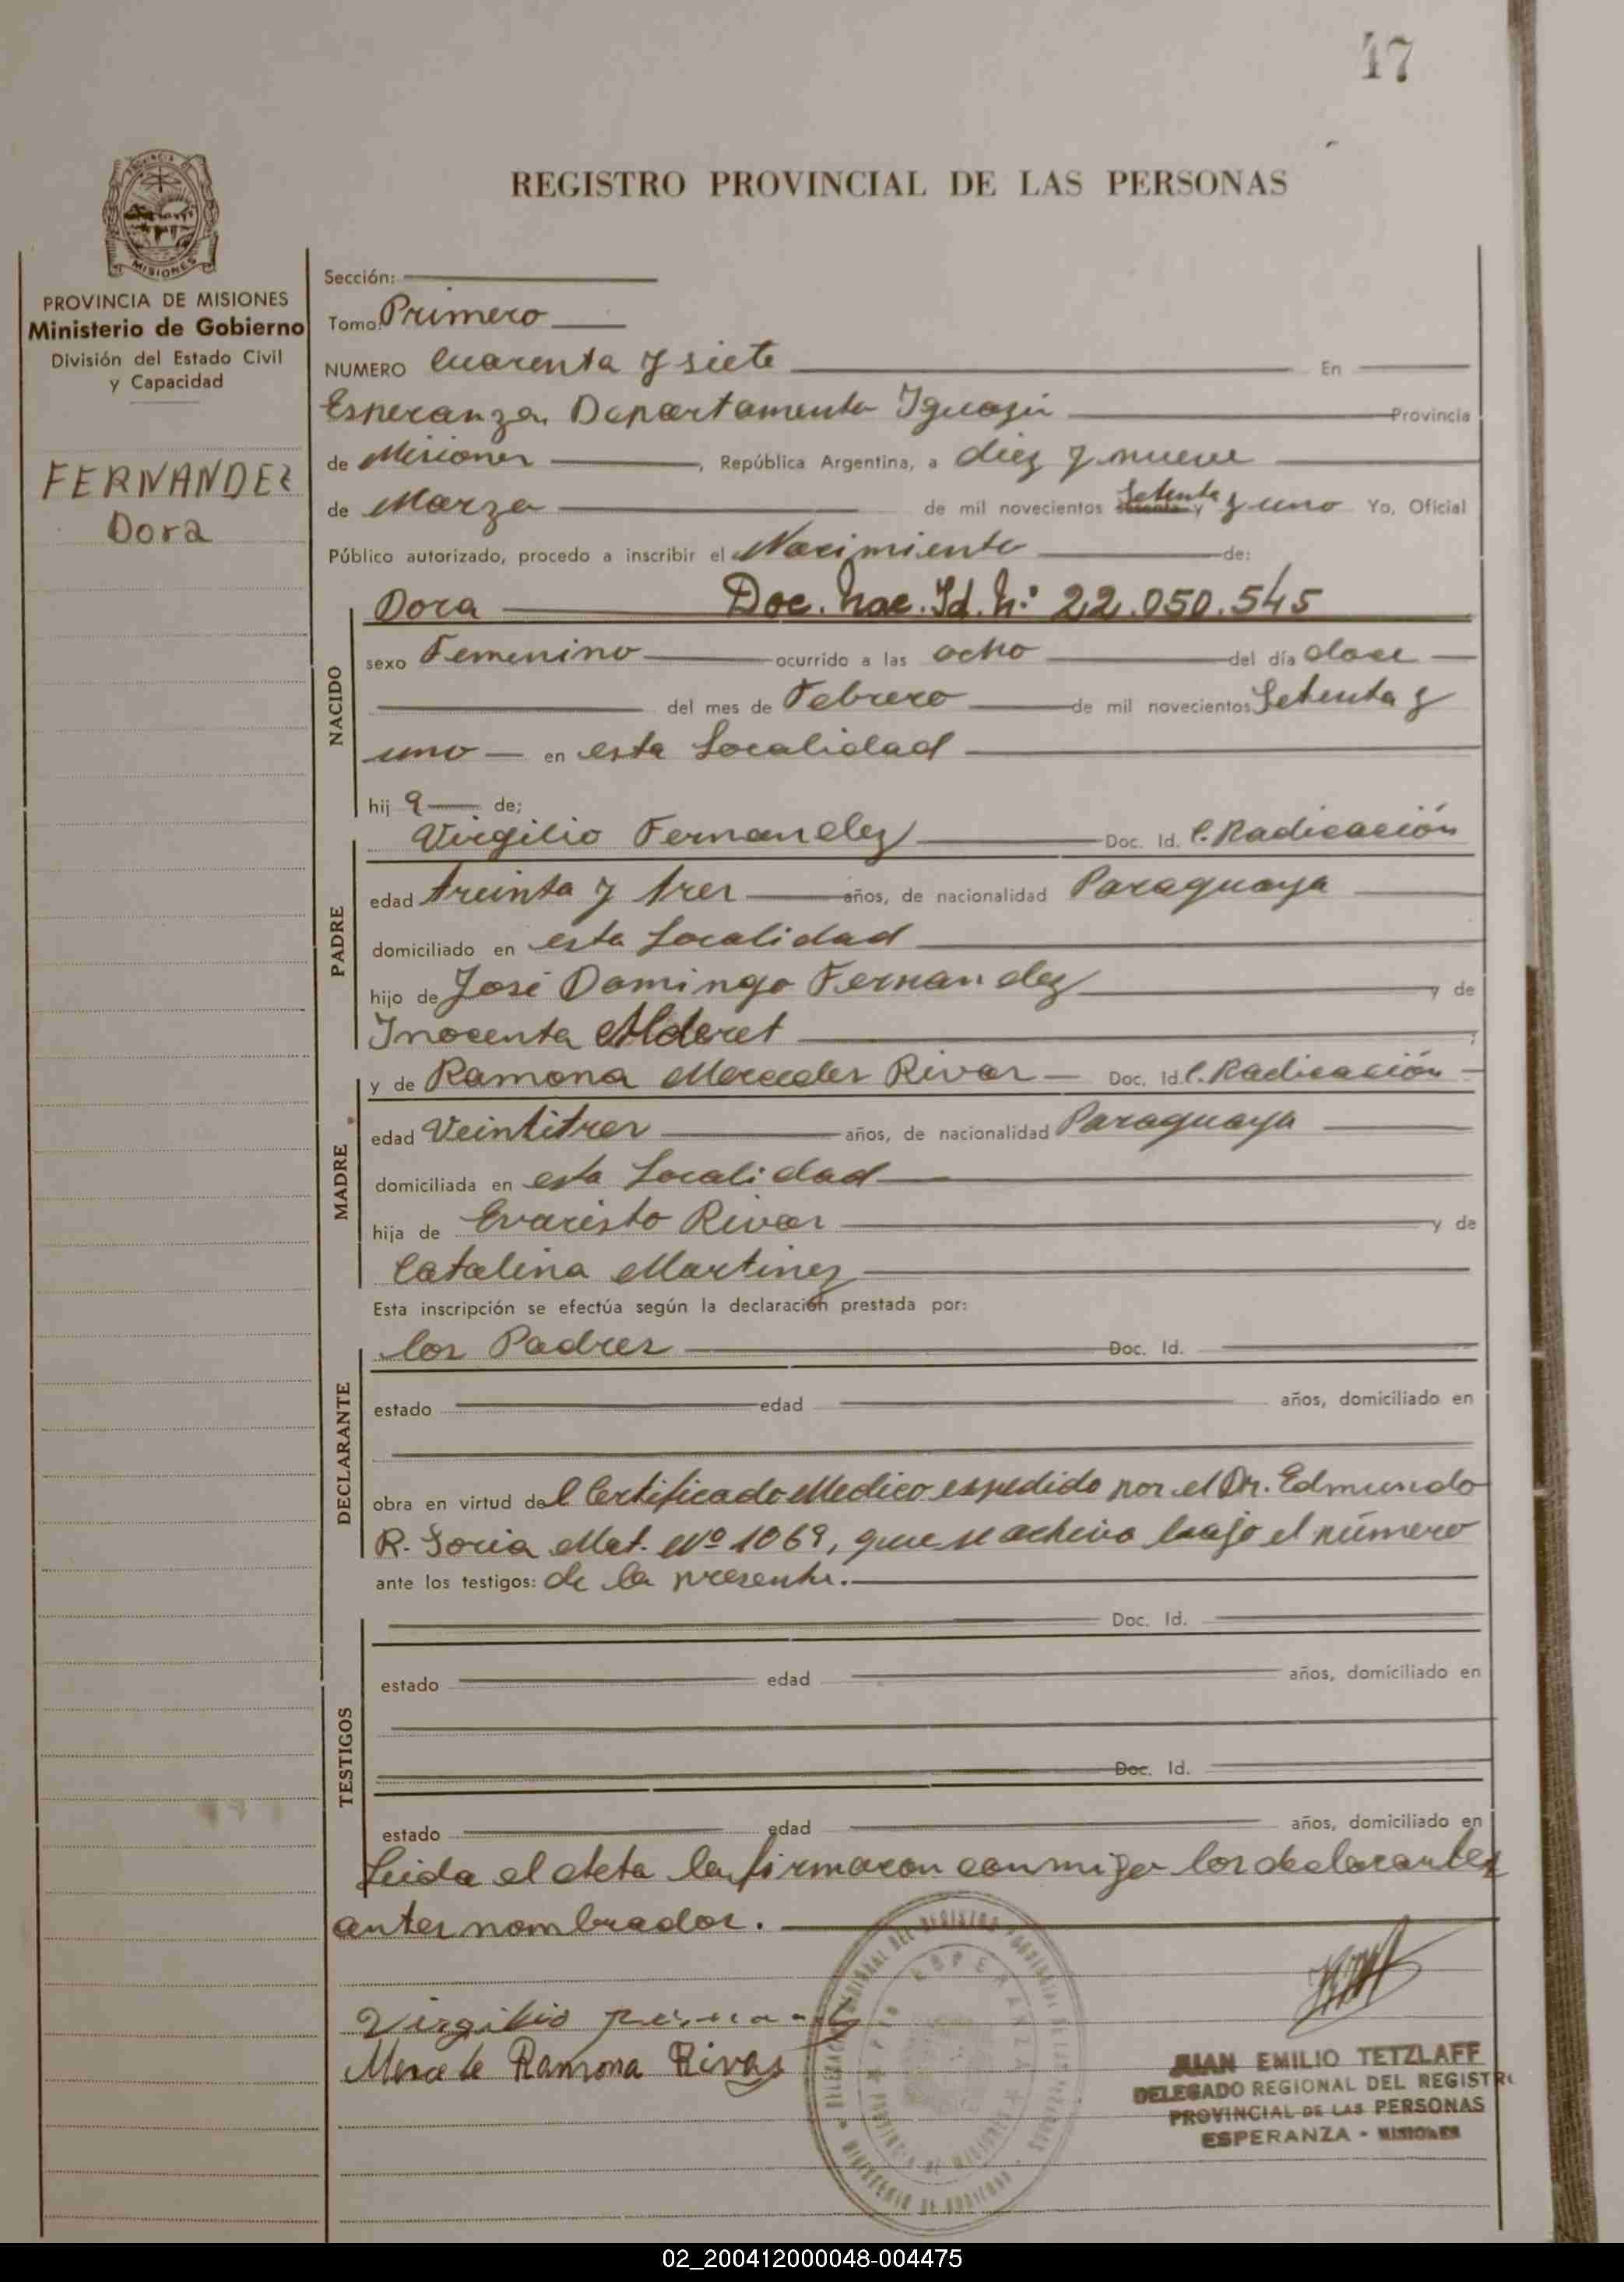 17
REGISTRO PROVINCIAL DE LAS PERSONAS
MISIONES
PROVINCIA DE MISIONES
Ministerio de Gobierno
División del Estado Civil
y Capacidad
FERNANDEZ
Dora
Sección:
Tomo: Primero
NUMERO Cuarenta y siete En
Esperanza, Departamento Iguazú Provincia
de Misiones, República Argentina, a diez y nueve
de Marzo de mil novecientos setenta y uno Yo, Oficial
Público autorizado, procedo a inscribir el Nacimiento de:
NACIDO
Dora Doc. Nac. Id. Nº 22.050.545
sexo Femenino ocurrido a las ocho del día doce
del mes de Febrero de mil novecientos Setenta y
uno en esta Localidad
hij a de;
PADRE
Virgilio Fernandez Doc. Id. C. Radicación
edad treinta y tres años, de nacionalidad Paraguaya
domiciliado en esta Localidad
hijo de José Domingo Fernandez y de
Inocenta Alderet ;
MADRE
y de Ramona Mercedes Rivas Doc. Id. C. Radicación
edad Veintitres años, de nacionalidad Paraguaya
domiciliada en esta Localidad
hija de Evaristo Rivas y de
Catalina Martinez
Esta inscripción se efectúa según la declaración prestada por:
DECLARANTE
los Padres Doc. Id.
estado edad años, domiciliado en
obra en virtud del Certificado Medico expedido por el Dr. Edmundo
R. Soria Mat. Nº 1069, que se achiva bajo el número
ante los testigos: de la presente.
TESTIGOS
Doc. Id.
estado edad años, domiciliado en
Doc. Id.
estado edad años, domiciliado en
Leida el Acta la firmaron conmigo los declarantes
antes nombrados.
Virgilio
Ramona Rivas
ESPERANZA
JUAN EMILIO TETZLAFF
DELEGADO REGIONAL DEL REGISTRO
PROVINCIAL DE LAS PERSONAS
ESPERANZA - MISIONES
02_200412000048-004475